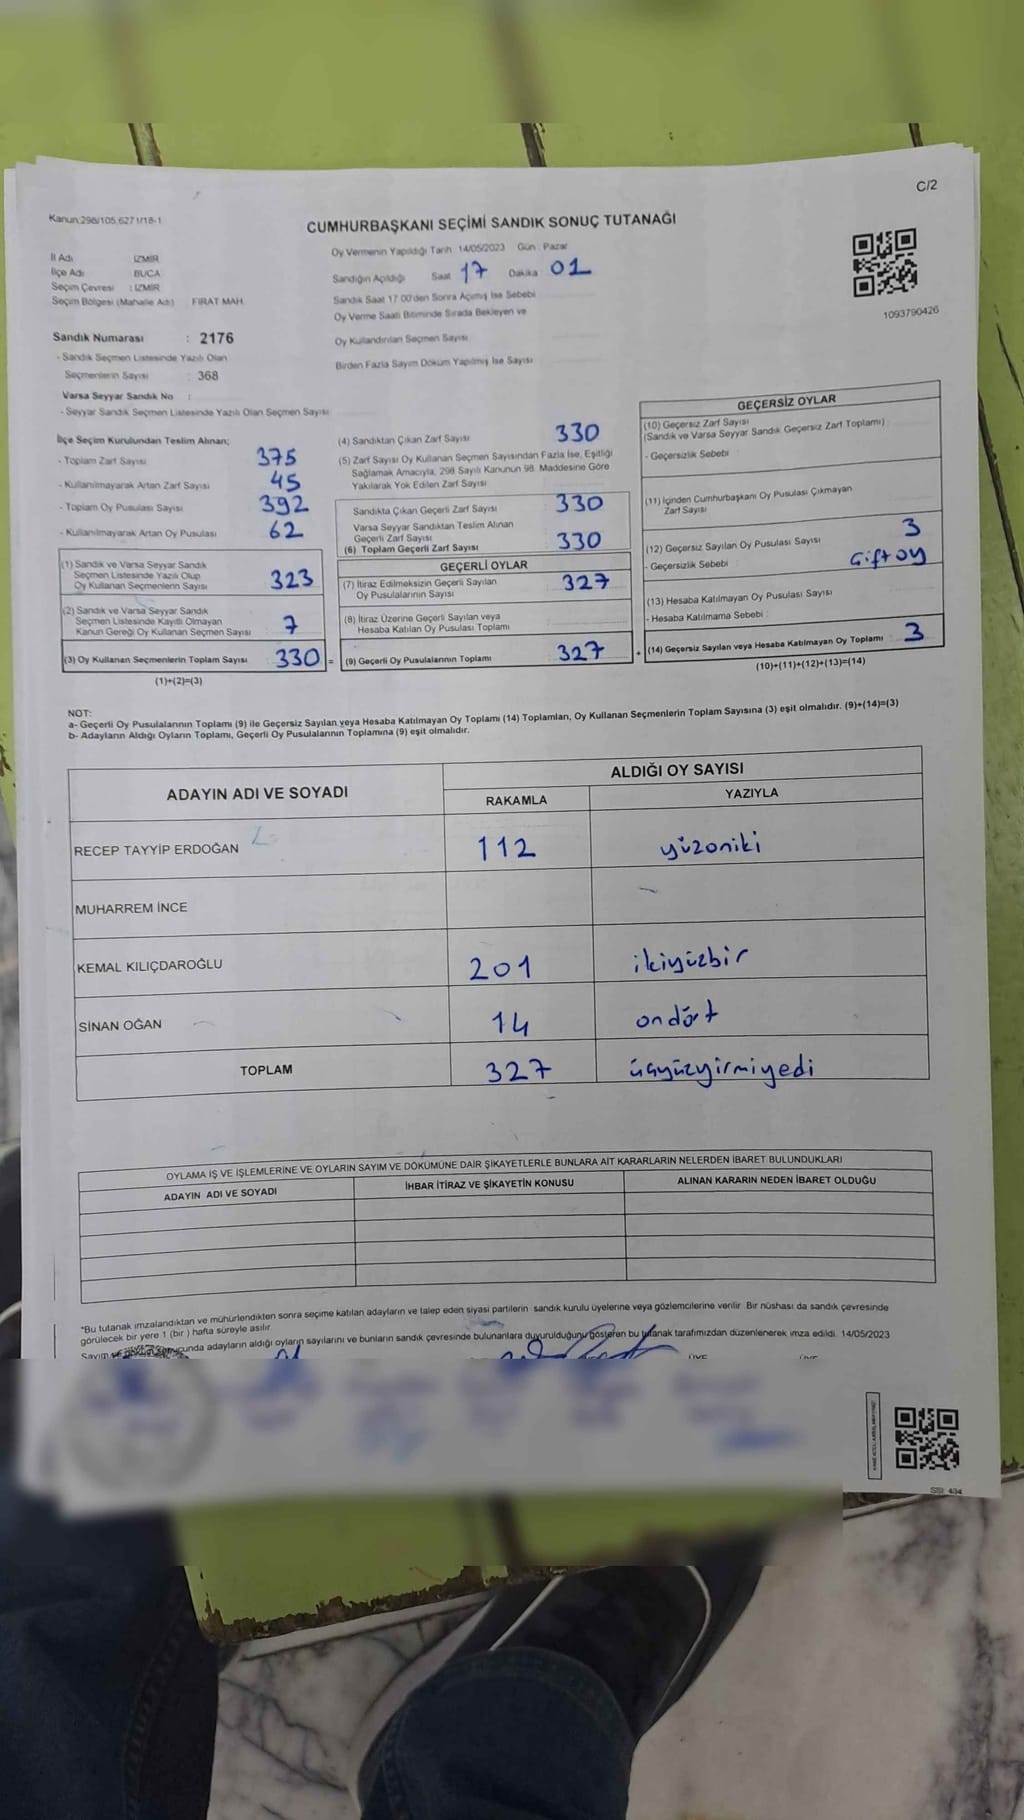 C/2
Kanun:298/105,6271/18-1
CUMHURBAŞKANI SEÇİMİ SANDIK SONUÇ TUTANAĞI
Oy Vermenin Yapıldığı Tarih 14/05/2023 Gün : Pazar
İl Adı İZMİR
İlçe Adı BUCA
Seçim Çevresi : İZMİR
Seçim Bölgesi (Mahalle Adı) FIRAT MAH.
Sandığın Açıldığı Saat 17 Dakika 01
Sandık Saat 17 00'den Sonra Açımış İse Sebebi
Oy Verme Saati Bitiminde Sırada Bekleyen ve
Oy Kullandırılan Seçmen Sayısı
Birden Fazla Sayım Döküm Yapılmış İse Sayısı
1093790426
Sandık Numarası : 2176
- Sandık Seçmen Listesinde Yazılı Olan
Seçmenlerin Sayısı : 368
Varsa Seyyar Sandık No :
- Seyyar Sandık Seçmen Listesinde Yazılı Olan Seçmen Sayısı
İlçe Seçim Kurulundan Teslim Alınan;
- Toplam Zarf Sayısı 375
- Kullanılmayarak Artan Zarf Sayısı 45
- Toplam Oy Pusulası Sayısı 392
- Kullanılmayarak Artan Oy Pusulası 62
(1) Sandık ve Varsa Seyyar Sandık
Seçmen Listesinde Yazılı Olup
Oy Kullanan Seçmenlerin Sayısı 323
(2) Sandık ve Varsa Seyyar Sandık
Seçmen Listesinde Kayıtlı Olmayan
Kanun Gereği Oy Kullanan Seçmen Sayısı 7
(3) Oy Kullanan Seçmenlerin Toplam Sayısı : 330 =
(1)+(2)=(3)
(4) Sandıktan Çıkan Zarf Sayısı 330
(5) Zarf Sayısı Oy Kullanan Seçmen Sayısından Fazla İse, Eşitliği
Sağlamak Amacıyla, 298 Sayılı Kanunun 98. Maddesine Göre
Yakılarak Yok Edilen Zarf Sayısı
Sandıkta Çıkan Geçerli Zarf Sayısı 330
Varsa Seyyar Sandıktan Teslim Alınan
Geçerli Zarf Sayısı
(6) Toplam Geçerli Zarf Sayısı 330
GEÇERLİ OYLAR
(7) İtiraz Edilmeksizin Geçerli Sayılan
Oy Pusulalarının Sayısı 327
(8) İtiraz Üzerine Geçerli Sayılan veya
Hesaba Katılan Oy Pusulası Toplamı
(9) Geçerli Oy Pusulalarının Toplamı 327 +
GEÇERSİZ OYLAR
(10) Geçersiz Zarf Sayısı
(Sandık ve Varsa Seyyar Sandık Geçersiz Zarf Toplamı)
- Geçersizlik Sebebi
(11) İçinden Cumhurbaşkanı Oy Pusulası Çıkmayan
Zarf Sayısı
(12) Geçersiz Sayılan Oy Pusulası Sayısı 3
- Geçersizlik Sebebi Çift oy
(13) Hesaba Katılmayan Oy Pusulası Sayısı
- Hesaba Katılmama Sebebi :
(14) Geçersiz Sayılan veya Hesaba Katılmayan Oy Toplamı : 3
(10)+(11)+(12)+(13)=(14)
NOT:
a- Geçerli Oy Pusulalarının Toplamı (9) ile Geçersiz Sayılan veya Hesaba Katılmayan Oy Toplamı (14) Toplamları, Oy Kullanan Seçmenlerin Toplam Sayısına (3) eşit olmalıdır. (9)+(14)=(3)
b- Adayların Aldığı Oyların Toplamı, Geçerli Oy Pusulalarının Toplamına (9) eşit olmalıdır.
ADAYIN ADI VE SOYADI ALDIĞI OY SAYISI
RAKAMLA YAZIYLA
RECEP TAYYİP ERDOĞAN 112 yüzoniki
MUHARREM İNCE
KEMAL KILIÇDAROĞLU 201 ikiyüzbir
SİNAN OĞAN 14 ondört
TOPLAM 327 üçyüzyirmiyedi
OYLAMA İŞ VE İŞLEMLERİNE VE OYLARIN SAYIM VE DÖKÜMÜNE DAİR ŞİKAYETLERLE BUNLARA AİT KARARLARIN NELERDEN İBARET BULUNDUKLARI
ADAYIN ADI VE SOYADI İHBAR İTİRAZ VE ŞİKAYETİN KONUSU ALINAN KARARIN NEDEN İBARET OLDUĞU
*Bu tutanak imzalandıktan ve mühürlendikten sonra seçime katılan adayların ve talep eden siyasi partilerin sandık kurulu üyelerine veya gözlemcilerine verilir Bir nüshası da sandık çevresinde
görülecek bir yere 1 (bir ) hafta süreyle asılır
Sayım ve adayların aldığı oyların sayılarını ve bunların sandık çevresinde bulunanlara duyurulduğunu gösteren bu tutanak tarafımızdan düzenlenerek imza edildi. 14/05/2023
ÜYE ÜYE